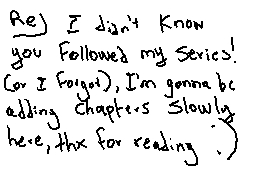 Re) I didn't know
you followed my series!
(or I forgot), I'm gonna be
adding chapters slowly
here, thx for reading :)